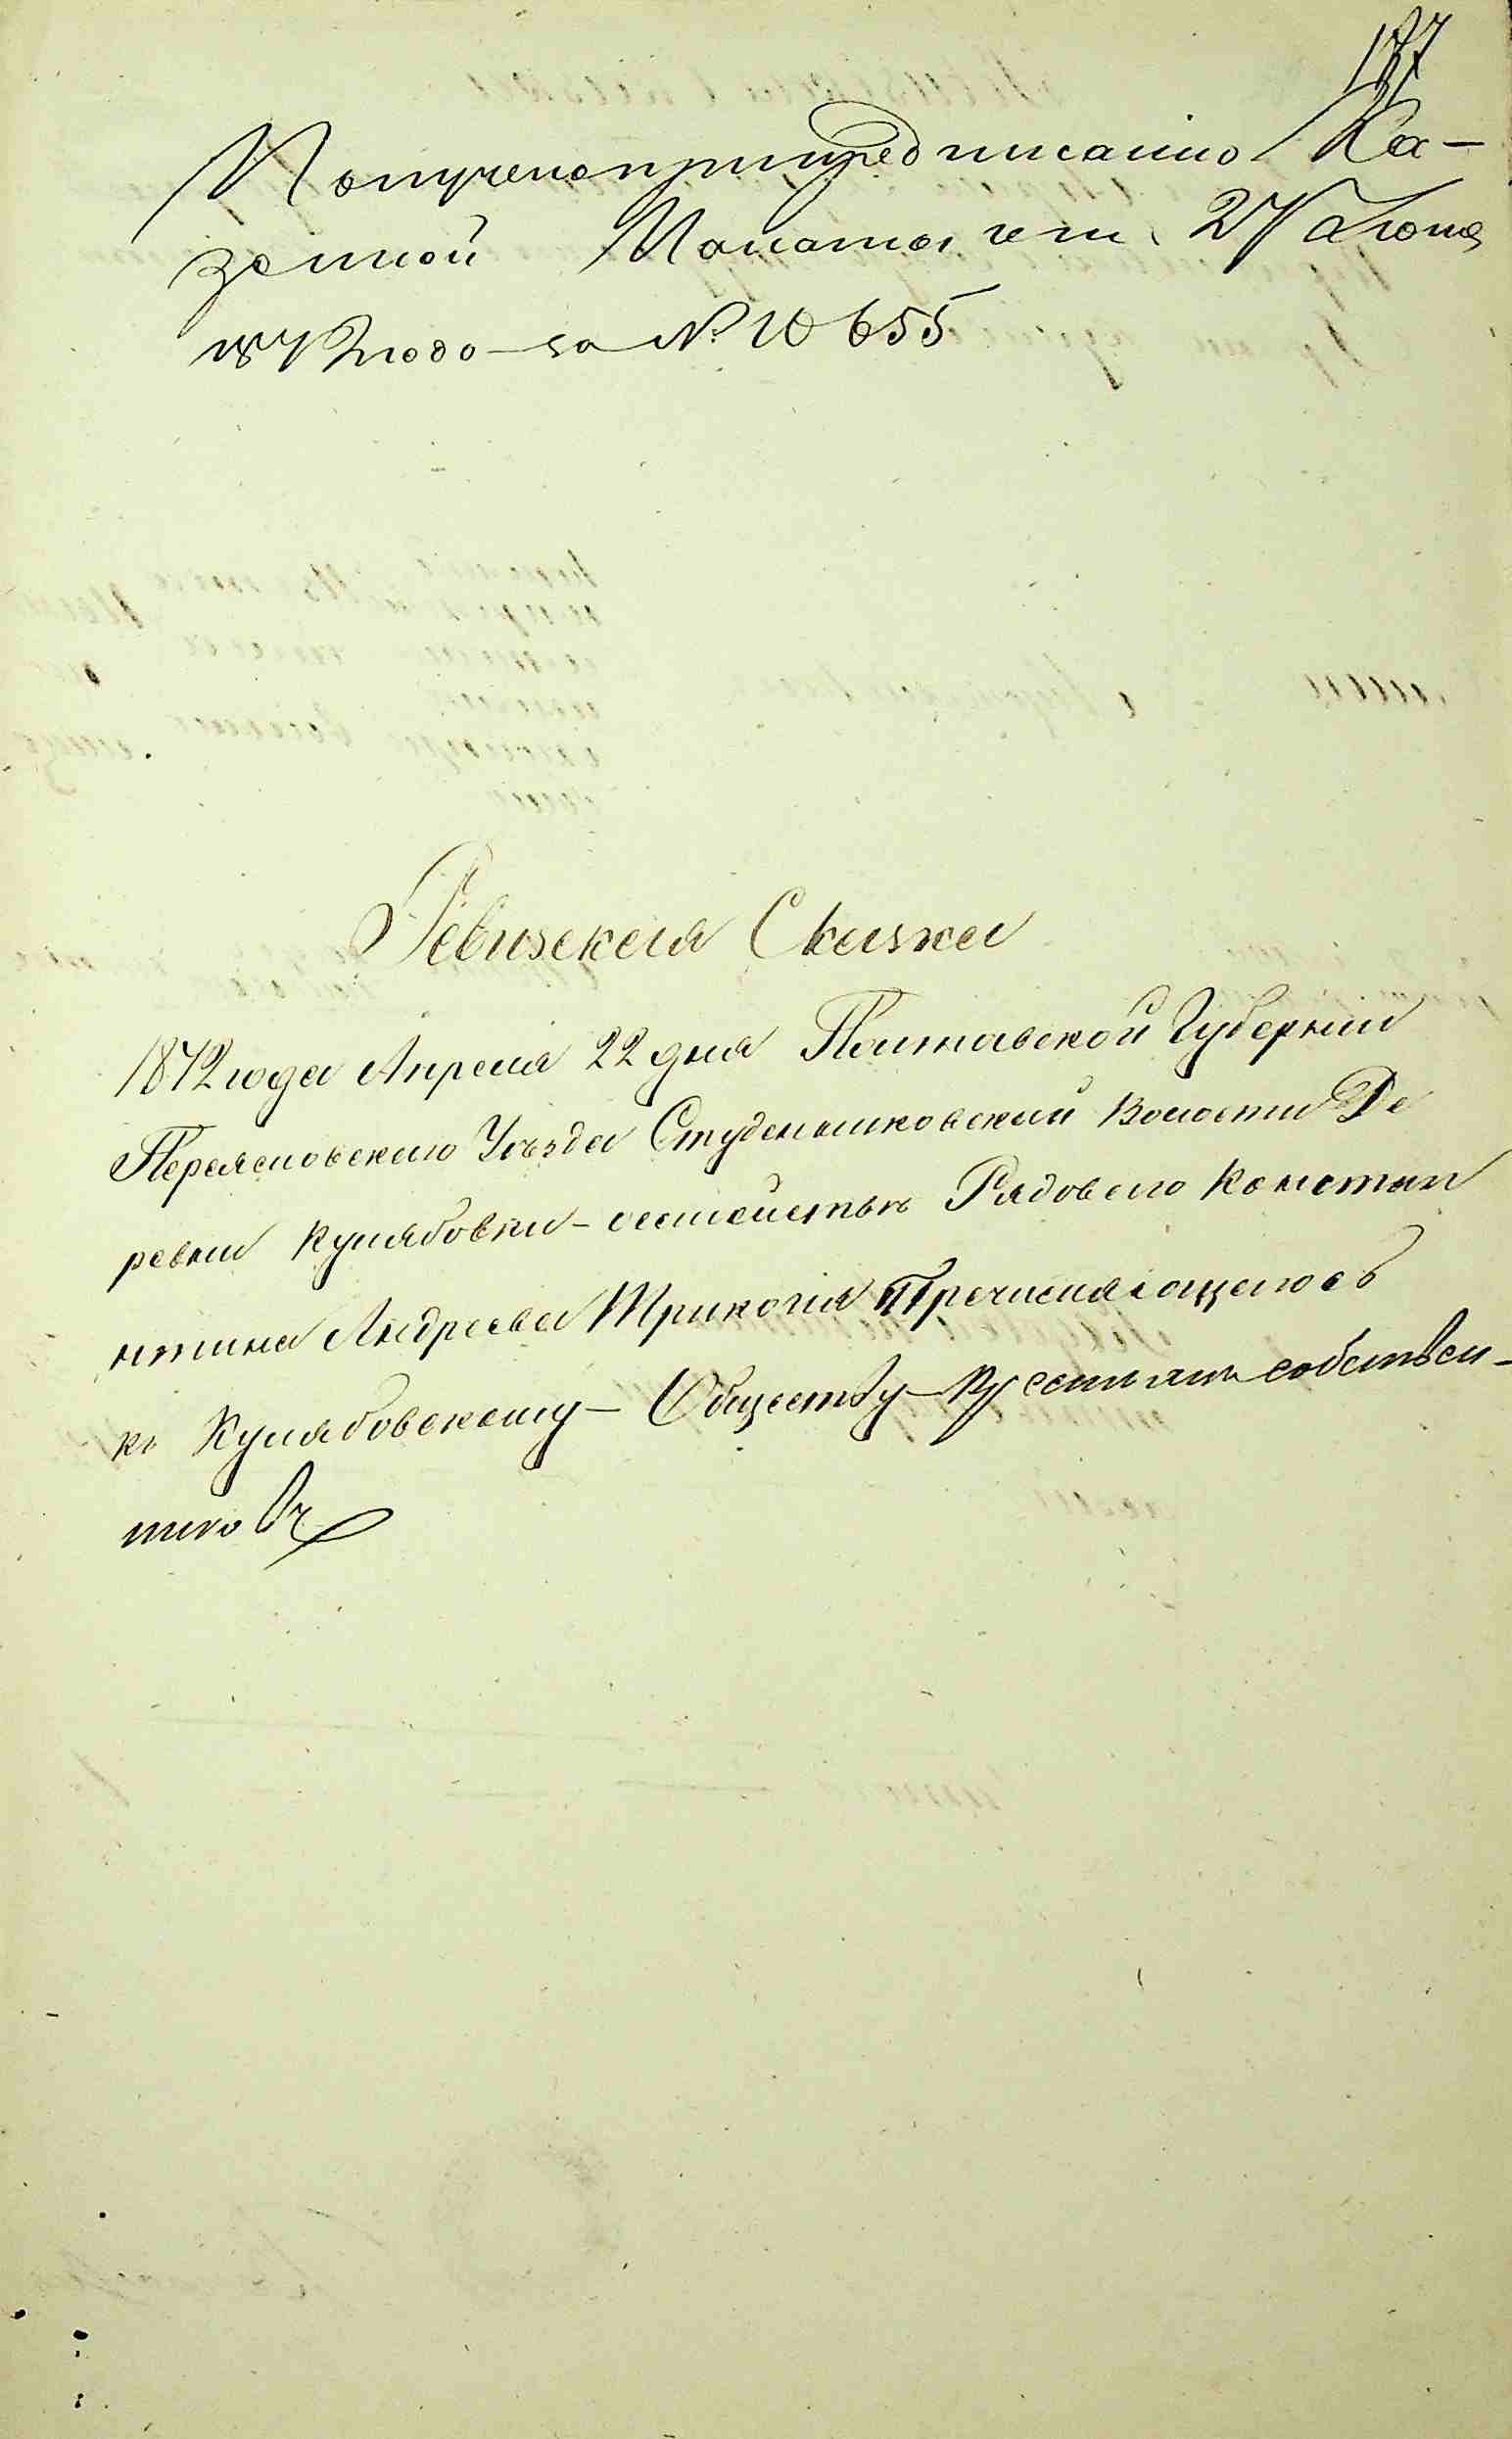 177
Получено при предписанiи Ка-
зенной Палаты отъ 27 Iюня
1872 года за № 10655
Ревизская Сказка
1872 года Апреля 22 дня Полтавской Губернiи
Переясловскаго Уѣзда Студениковской Волости Де
ревни Кулябовки – семейству Рядового Констан
нтина Андреева Триколя Пречисляющегося
къ Кулябовскому – Обществу собствен-
никовъ